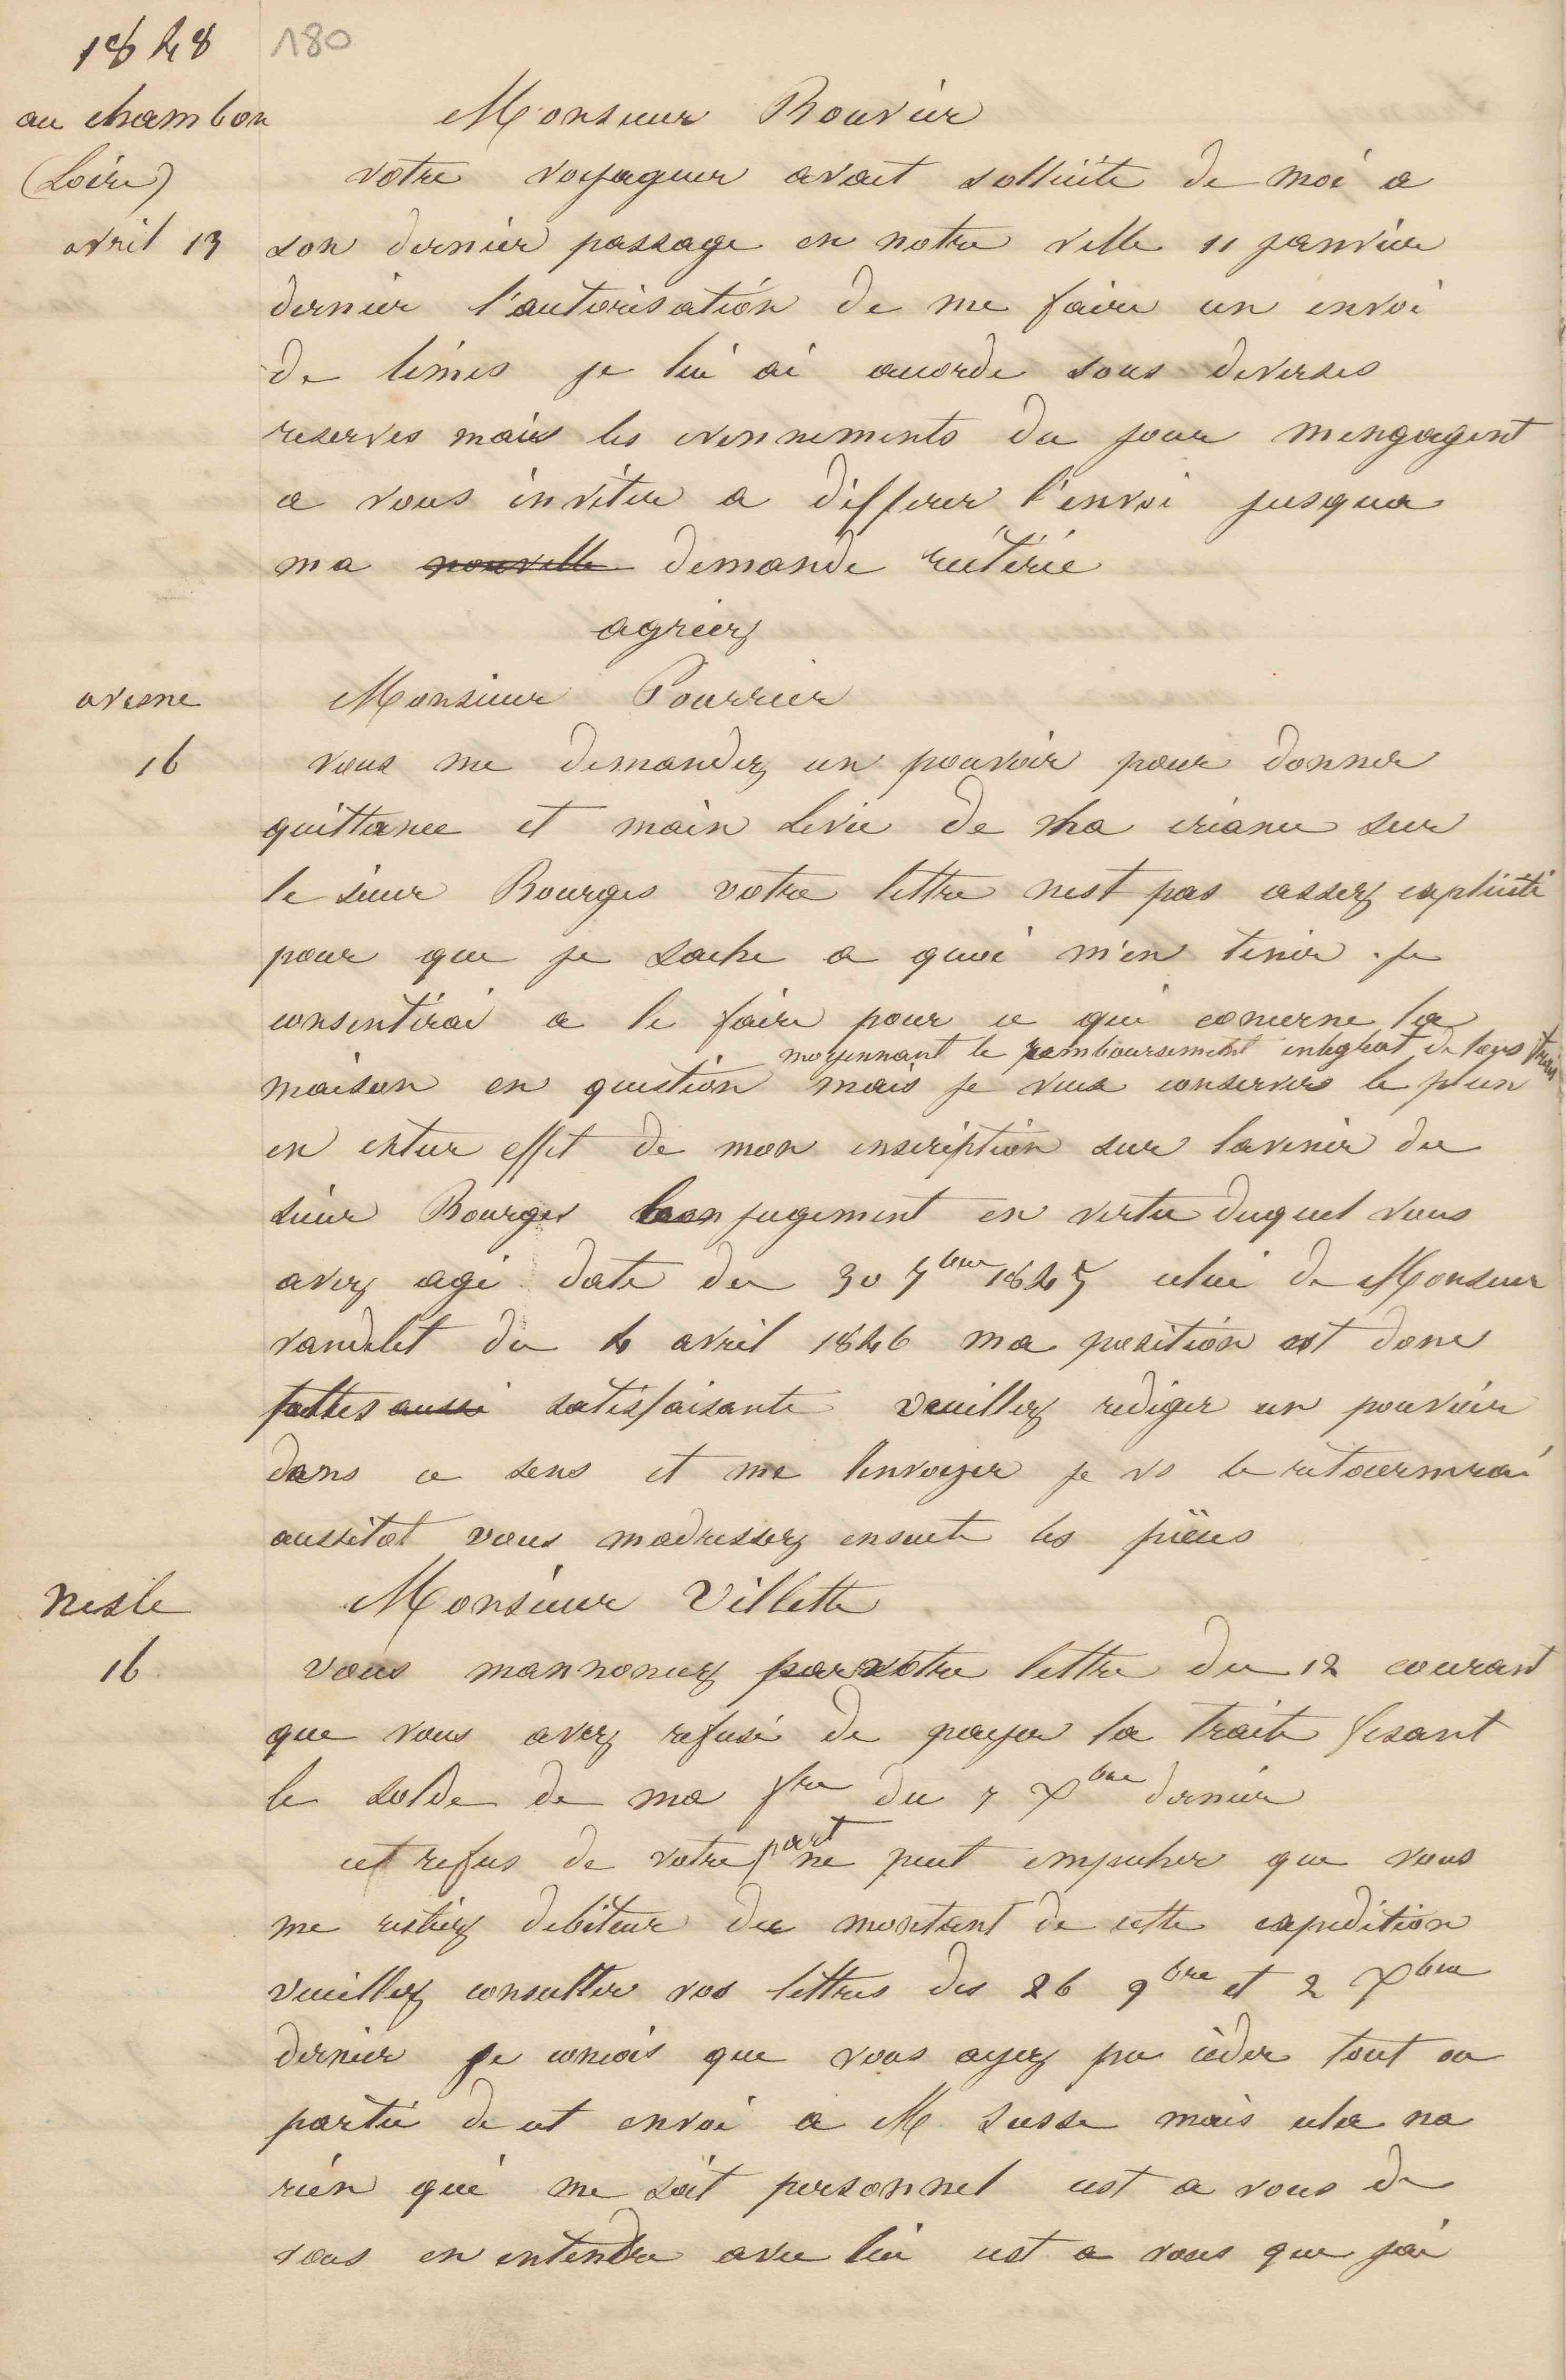 1848
180
au chambon
(Loire)
avril 13
Monsieur Bouvier
votre voyageur avait sollicité de moi a
son dernier passage en notre ville 11 janvier
dernier l'autorisation de me faire un envoi
de limes je lui ai accorde sous diverses
reserves mais les evennements du jour mengagent
a vous inviter a differer l'envoi jusqua
ma nouvelle demande reiterée
agréez
avesne
16
Monsieur Pourrier
vous me demandez un pouvoir pour donner
quittance et main levée de ma créance sur
le sieur Bourges votre lettre nest pas assez explicite
pour que je sache a quoi m'en tenir. je
consentirai a le faire pour ce qui concerne la
moyennant le remboursement integral de tous frais
maison en question mais je veux conserver le plein
en entier effet de mon inscription sur lavenir du
sieur Bourges jugement en vertu duquel vous
avez agi date du 30 7bre 1845 celui de Monsieur
vandelet du 4 avril 1846 ma position est donc
aussi satisfaisante veuillez rediger un pouvoir
dans ce sens et me lenvoyer je vs le retournerai
aussitot vous madressez ensuite les pièces
Nesle
16
Monsieur Villette
vous mannoncez par votre lettre du 12 courant
que vous avez refusé de payer la traite fesant
le solde de ma fre du 7 Xbre dernier
cet refus de votre part ne peut empecher que vous
me restiez debiteur du montant de cette expedition
veuillez consulter vos lettres des 26 9bre et 2 Xbre
dernier je concois que vous ayez pu céder tout ou
partie de cet envoi a M Susse mais cela na
rien qui me soit personnel cest a vous de
vous en entendre avec lui cest a vous que jai